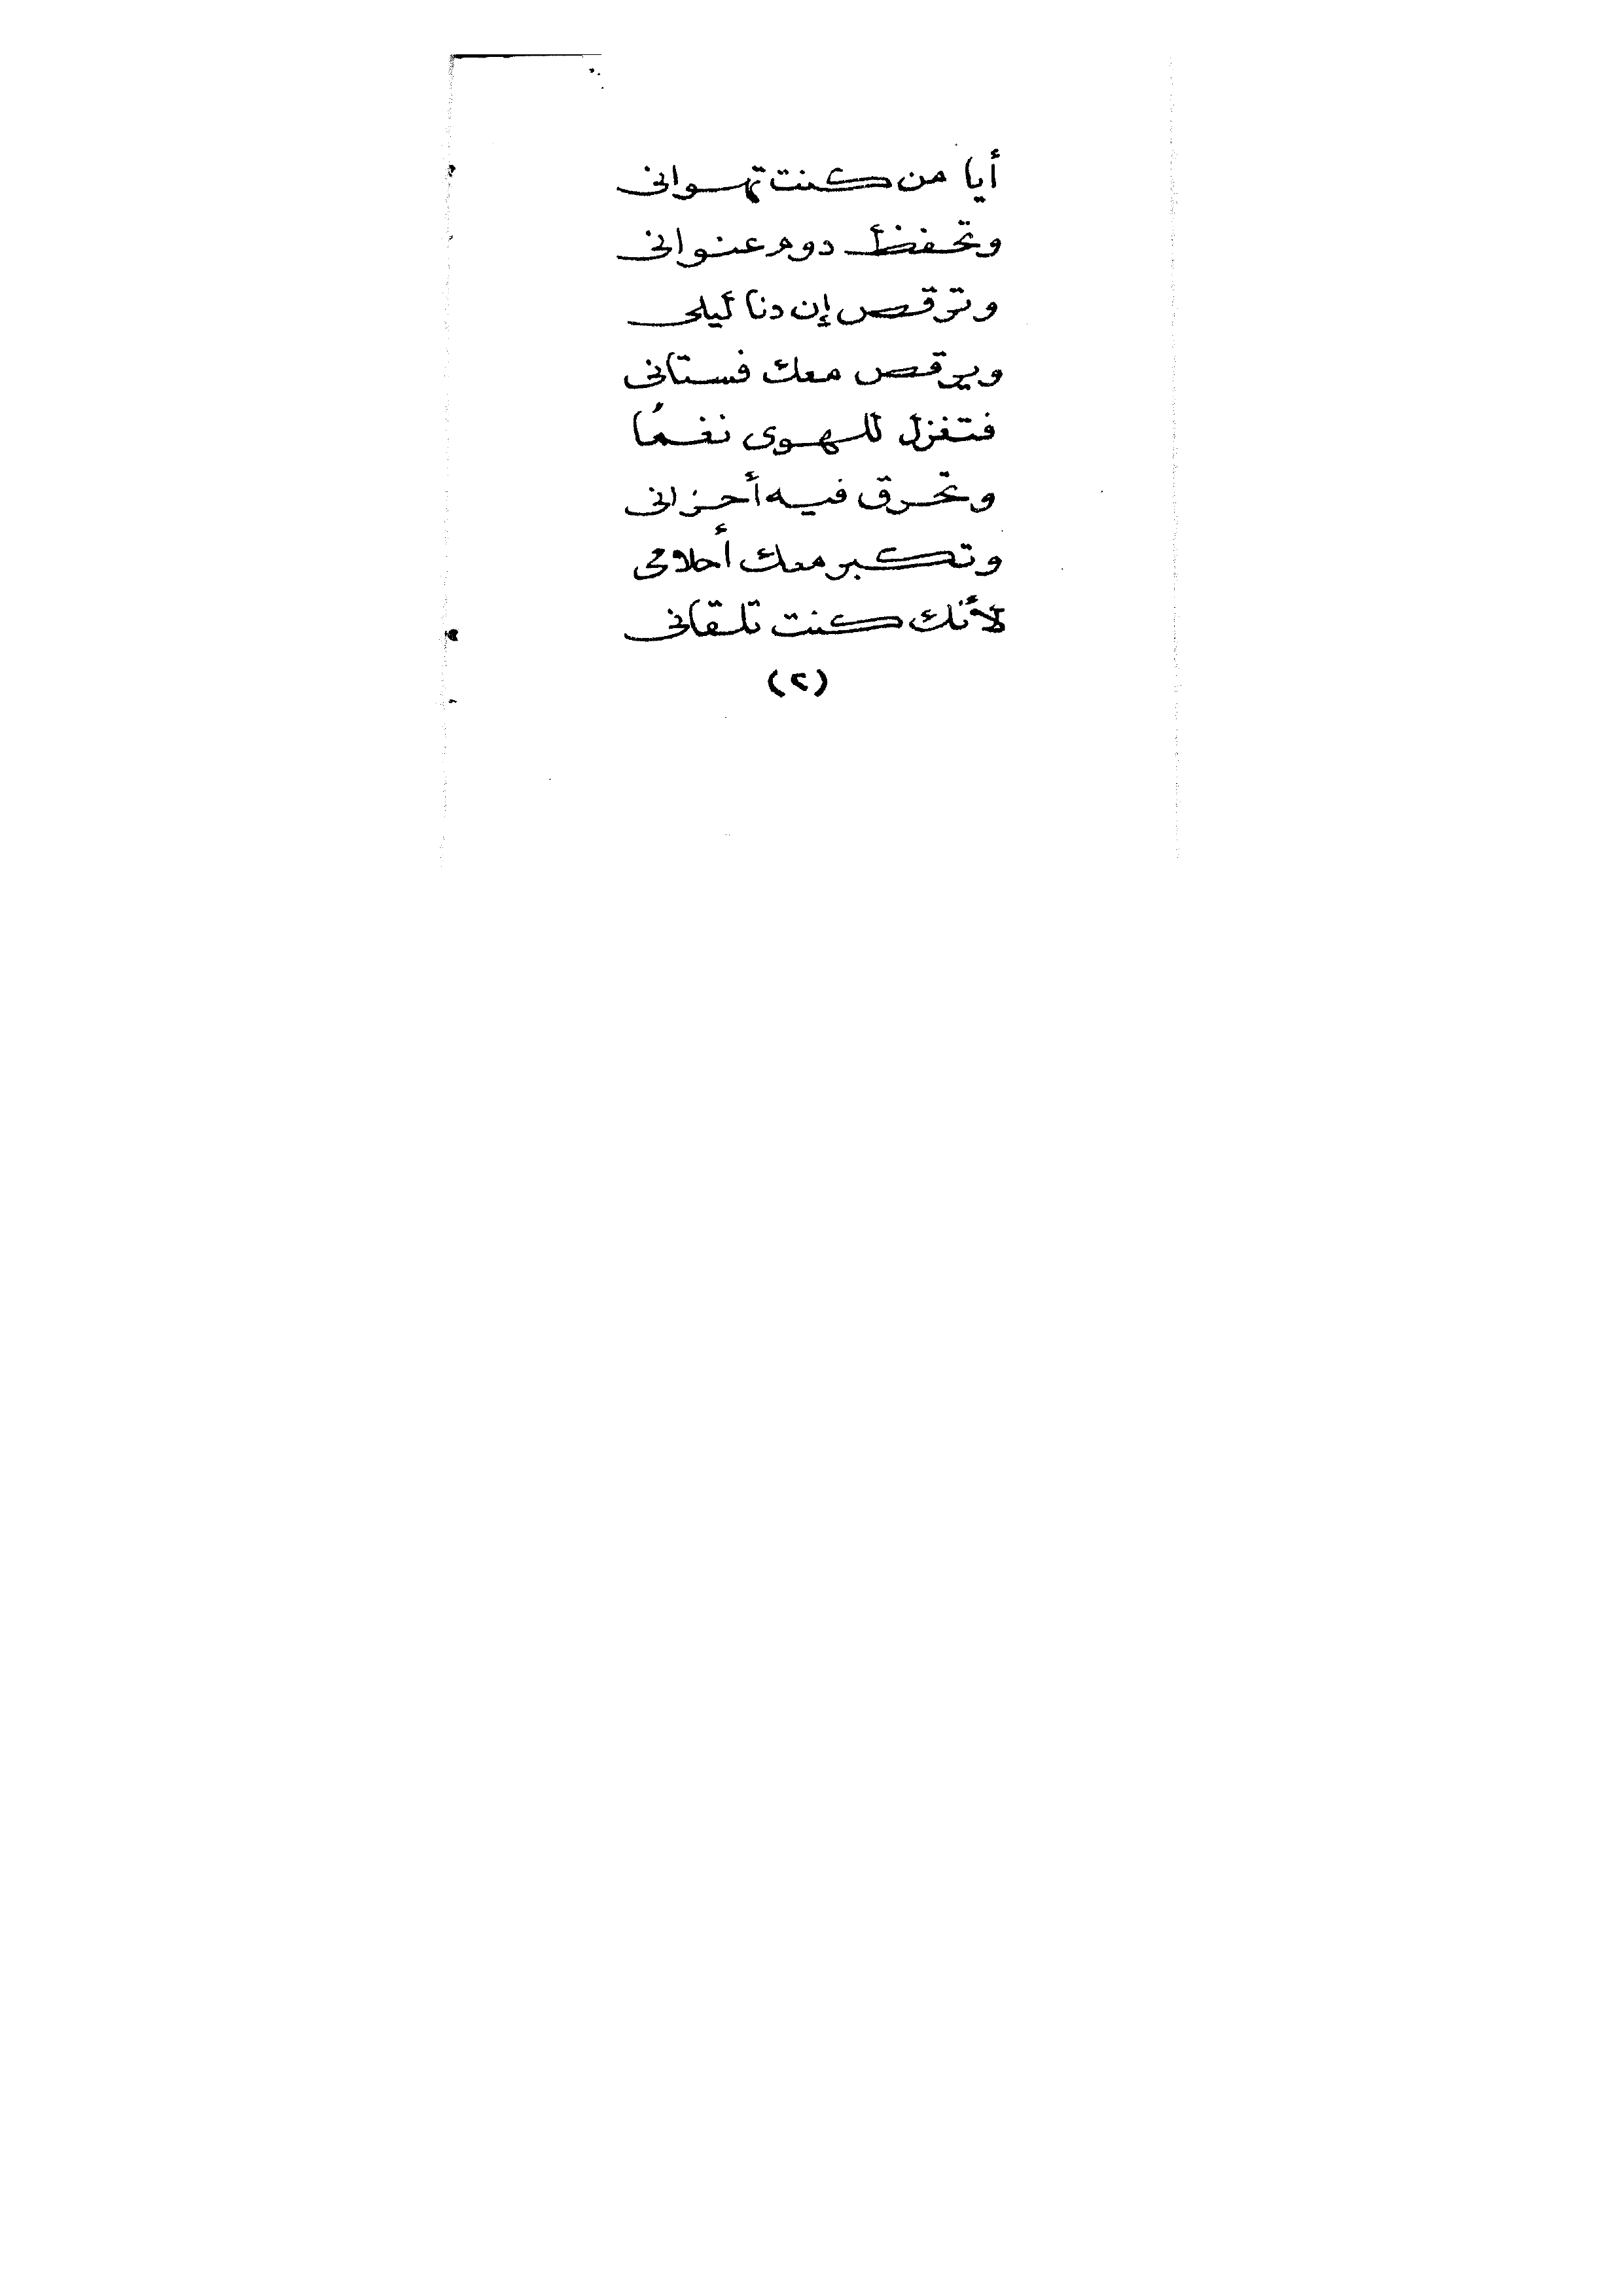 أيا من كنت تهوانى
وتحفظ دوم عنوانى
وترقص إن دنا ليلى
ويرقص معك فستانى
فتغزل للهوى نغمًا
وتحرق فيه أحزانى
وتكبر معك أحلامى
لأنك كنت تلقانى
(٢)